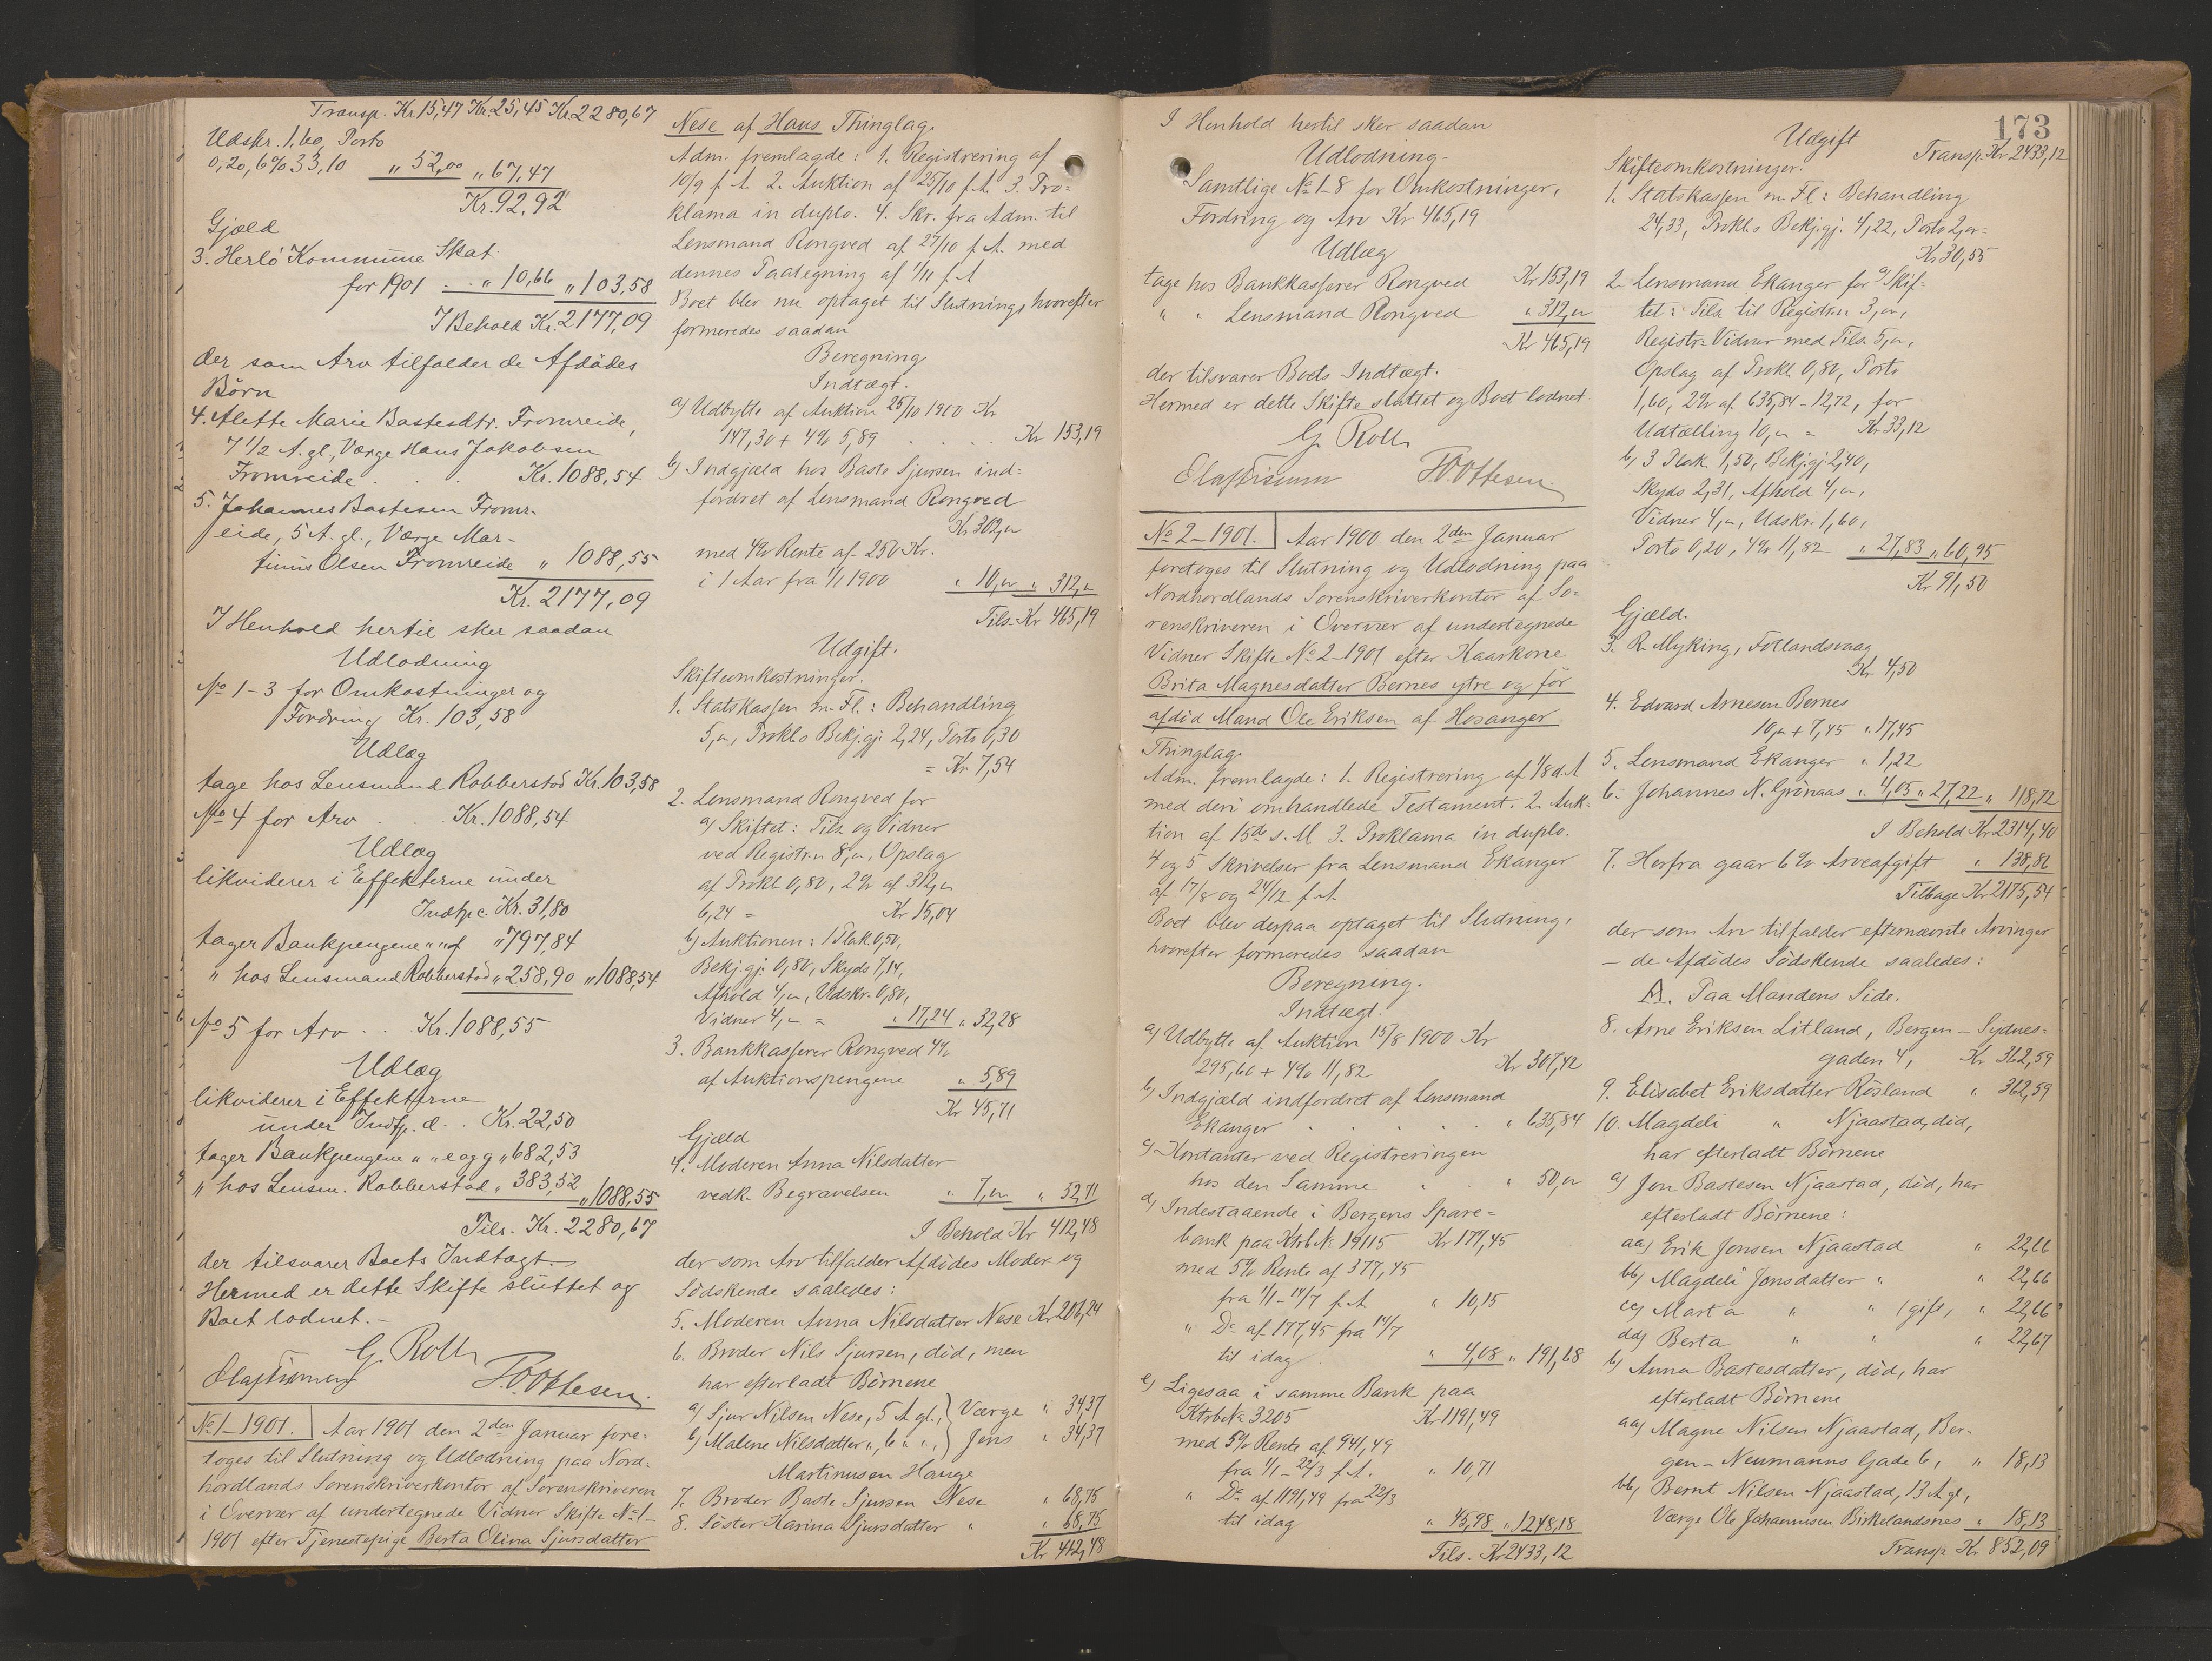 Transp. Kr 15,47 Kr 25,45 Kr 2280,67
Udskr. 1,60, Porto
0,20, 6% 33,10 " 52,00 " 67,47
Kr. 92,92
Gjæld
3. Herlø Kommune Skat
for 1901 . . " 10,66 " 103,58
I Behold Kr. 2177,09
der som Arv tilfalder de Afdødes
Børn
4. Alette Marie Bastesdtr. Fromreide,
7 1/2 A. gl., Værge Hans Jakobsen
Fromreide . . . Kr. 1088,54
5. Johannes Bastesen From-
reide, 5 A. gl., Værge Mar-
tinus Olsen Fromreide " 1088,55
Kr. 2177,09
I Henhold hertil sker saadan
Udlodning
No 1-3 for Omkostninger og
Fordring Kr. 103,58
Udlæg
tage hos Lensmand Robberstad Kr. 103,58
No 4 for Arv . . Kr. 1088,54
Udlæg
likviderer i Effekterne under
Indtp c. Kr. 31,80
tager Bankpengene " " f " 797,84
" hos Lensmand Robberstad " 258,90 " 1088,54
No 5 for Arv . . Kr. 1088,55
Udlæg
likviderer i Effekterne
under Indtp. d. . Kr. 22,50
tager Bankpengene " " e og g " 682,53
" hos Lensm. Robberstad " 383,52
" 1088,55
Tils. Kr. 2280,67
der tilsvarer Boets Indtægt.
Hermed er dette Skifte sluttet og
Boet lodnet.-
G. Roll
H.O. Ottesen.
No 1-1901. Aar 1901 den 2den Januar fore-
toges til Slutning og Udlodning paa Nord-
hordlands Sorenskriverkontor af Sorenskriveren
i Overvær af undertegnede Vidner Skifte No 1-
1901 efter Tjenestepige Berta Olina Sjursdatter
Nese af Haus Thinglag.
Adm. fremlagde: 1. Registrering af
10/9 f A. 2. Auktion af 25/10 f. A. 3. Pro-
klama in duplo. 4. Skr. fra Adm. til
Lensmand Rongved af 27/10 f. A. med
dennes Paategning af 1/11 f. A
Boet blev nu optaget til Slutning, hvorefter
formeredes saadan
Beregning
Indtægt.
a) Udbytte af Auktion 25/10 1900 Kr
147,30 + 4% 5,89 . . . . Kr 153,19
b) Indgjæld hos Baste Sjursen ind-
fordret af Lensmand Rongved
Kr 302,"
med 4% Rente af 250 Kr.
i 1 Aar fra 1/1 1900 " 10," " 312,"
Tils. Kr 465,19
Udgift.
Skifteomkostninger.
1. Statskassen m Fl.: Behandling
5,", Prokl.s Bekjgj. 2,24, Porto 0,30
= Kr. 7,54
2. Lensmand Rongved for
a) Skiftet: Tils. og Vidner
ved Registr.n 8,", Opslag
af Prokl. 0,80, 2% af 312,"
6,24 = Kr 15,04
b) Auktionen: 1 Plak. 0,50,
Bekj.gj. 0,80, Skyds 7,14,
Afhold 4,", Udskr. 0,80,
Vidner 4," = " 17,24 " 32,28
3. Bankkasserer Rongved 4%
af Auktionspengene " 5,89
Kr 45,71
Gjæld
4. Moderen Anna Nilsdatter
vedk. Begravelsen " 7," " 52,71
I Behold Kr 412,48
der som Arv tilfalder Afdødes Moder og
Sødskende saaledes:
5. Moderen Anna Nilsdatter Nese Kr 206,24
6. Broder Nils Sjursen, død, men
har efterladt Børnene
a) Sjur Nilsen Nese, 5 A gl., } Værge " 34,37
b) Malene Nilsdatter ", 6 " ", } Jens " 34,37
Martinusen Hauge
7. Broder Baste Sjursen Nese " 68,75
8. Søster Karina Sjursdatter " " 68,75
Kr 412,48
I Henhold hertil sker saadan
Udlodning-
Samtlige No 1-8 for Omkostninger,
Fordring og Arv Kr 465,19
Udlæg
tage hos Bankkasserer Rongved Kr 153,19
" " Lensmand Rongved " 312,"
Kr 465,19
der tilsvarer Boets Indtægt.
Hermed er dette Skifte sluttet og Boet lodnet.
G. Roll
H.O. Ottesen.
No 2-1901. Aar 1900 den 2den Januar
foretoges til Slutning og Udlodning paa
Nordhordlands Sorenskriverkontor af So-
renskriveren i Overvær af undertegnede
Vidner Skifte No 2-1901 efter Kaarkone
Brita Magnesdatter Bernes ytre og før
afdød Mand Ole Eriksen af Hosanger
Thinglag.
Adm. fremlagde: 1. Registrering af 1/8 d. A
med deri omhandlede Testament. 2. Auk-
tion af 15de s. M 3. Proklama in duplo.
4 og 5 Skrivelser fra Lensmand Ekanger
af 17/8 og 24/12 f A.
Boet blev derpaa optaget til Slutning,
hvorefter formeredes saadan
Beregning.
Indtægt.
a) Udbytte af Auktion 15/8 1900 Kr
295,60 + 4% 11,82 Kr 307,42
b) Indgjæld indfordret af Lensmand
Ekanger . . . . . " 635,84
c) Kontanter ved Registreringen
hos den Samme . . " 50,"
d) Indestaaende i Bergens Spare-
bank paa Ktrb No 19115 Kr 177,45
med 5% Rente af 377,45
fra 1/1-14/7 f. A " 10,15
" Do af 177,45 fra 14/7
til idag . " 4,08 " 191,68
e) Ligesaa i samme Bank paa
Ktrb No 3205 Kr 1191,49
med 5% Rente af 941,49
fra 1/1-22/3 f. A. " 10,71
" Do af 1191,49 fra 22/3
til idag " 45,98 " 1248,18
Tils. Kr 2433,12
173
Udgift
Transp. Kr 2433,12
Skifteomkostninger.
1. Statskassen m Fl: Behandling
24,33, Prokl.s Bekj.gj. 4,22, Porto 2," =
Kr 30,55
2. Lensmand Ekanger for a) Skif-
tet: Tils. til Registr.n 3,",
Registr.-Vidner med Tils. 5,",
Opslag af Prokl. 0,80, Porto
1,60, 2% af 635,84 - 12,72, for
Udtælling 10," = Kr 33,12
b) 3 Plak. 1,50, Bekj.gj. 2,40,
Skyds 2,31, Afhold 4,",
Vidner 4,", Udskr. 1,60,
Porto 0,20, 4% 11,82 " 27,83 " 60,95
Kr 91,50
Gjæld.
3. R. Myking, Fotlandsvaag
Kr 4,50
4. Edvard Arnesen Bernes
10," + 7,45 " 17,45
5. Lensmand Ekanger " 1,22
6. Johannes N. Grønaas " 4,05 " 27,22 " 118,72
I Behold Kr 2314,40
7. Herfra gaar 6% Arveafgift " 138,86
Tilbage Kr 2175,54
der som Arv tilfalder efternævnte Arvinger
- de Afdødes Sødskende saaledes:
A. Paa Mandens Side.
8. Arne Eriksen Litland, Bergen - Sydnes-
gaden 4, Kr 362,59
9. Elisabet Eriksdatter Røsland " 362,59
10. Magdeli " Njaastad, død,
har efterladt Børnene
a) Jon Bastesen Njaastad, død, har
efterladt Børnene:
aa) Erik Jonsen Njaastad " 22,66
bb) Magdeli Jonsdatter " " 22,66
cc) Marta " " (gift, " 22,66
dd) Berta " " " 22,67
b) Anna Bastesdatter, død, har
efterladt Børnene
aa) Magne Nilsen Njaastad, Ber-
gen - Neumanns Gade 6, " 18,13
bb) Bernt Nilsen Njaastad, 13 A gl,
Værge Ole Johannesen Birkelandsnes " 18,13
Transp Kr 852,09